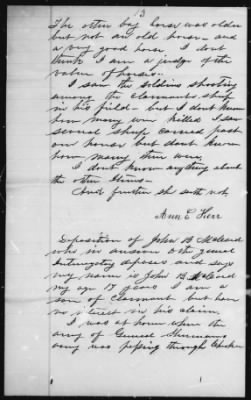 3
The other bay horse was older
but not an old horse - and
a very good horse I dont
think I am a judge of the
value of horses -
I saw the soldiers shooting
among the claimants sheep
in his field - but I dont know
how many were killed I saw
several sheep carried past
our house but dont know
how many there were
I dont know anything about
the other items -
And further sh saith not
Ann E Herr
Deposition of John B
who in answer to the general
Interrogatory deposes and says
my name is John B
my age 17 years I am a
son of Claimant but have
no interest in his claim.
I was at home when the
army of General Shermans
army was passing through